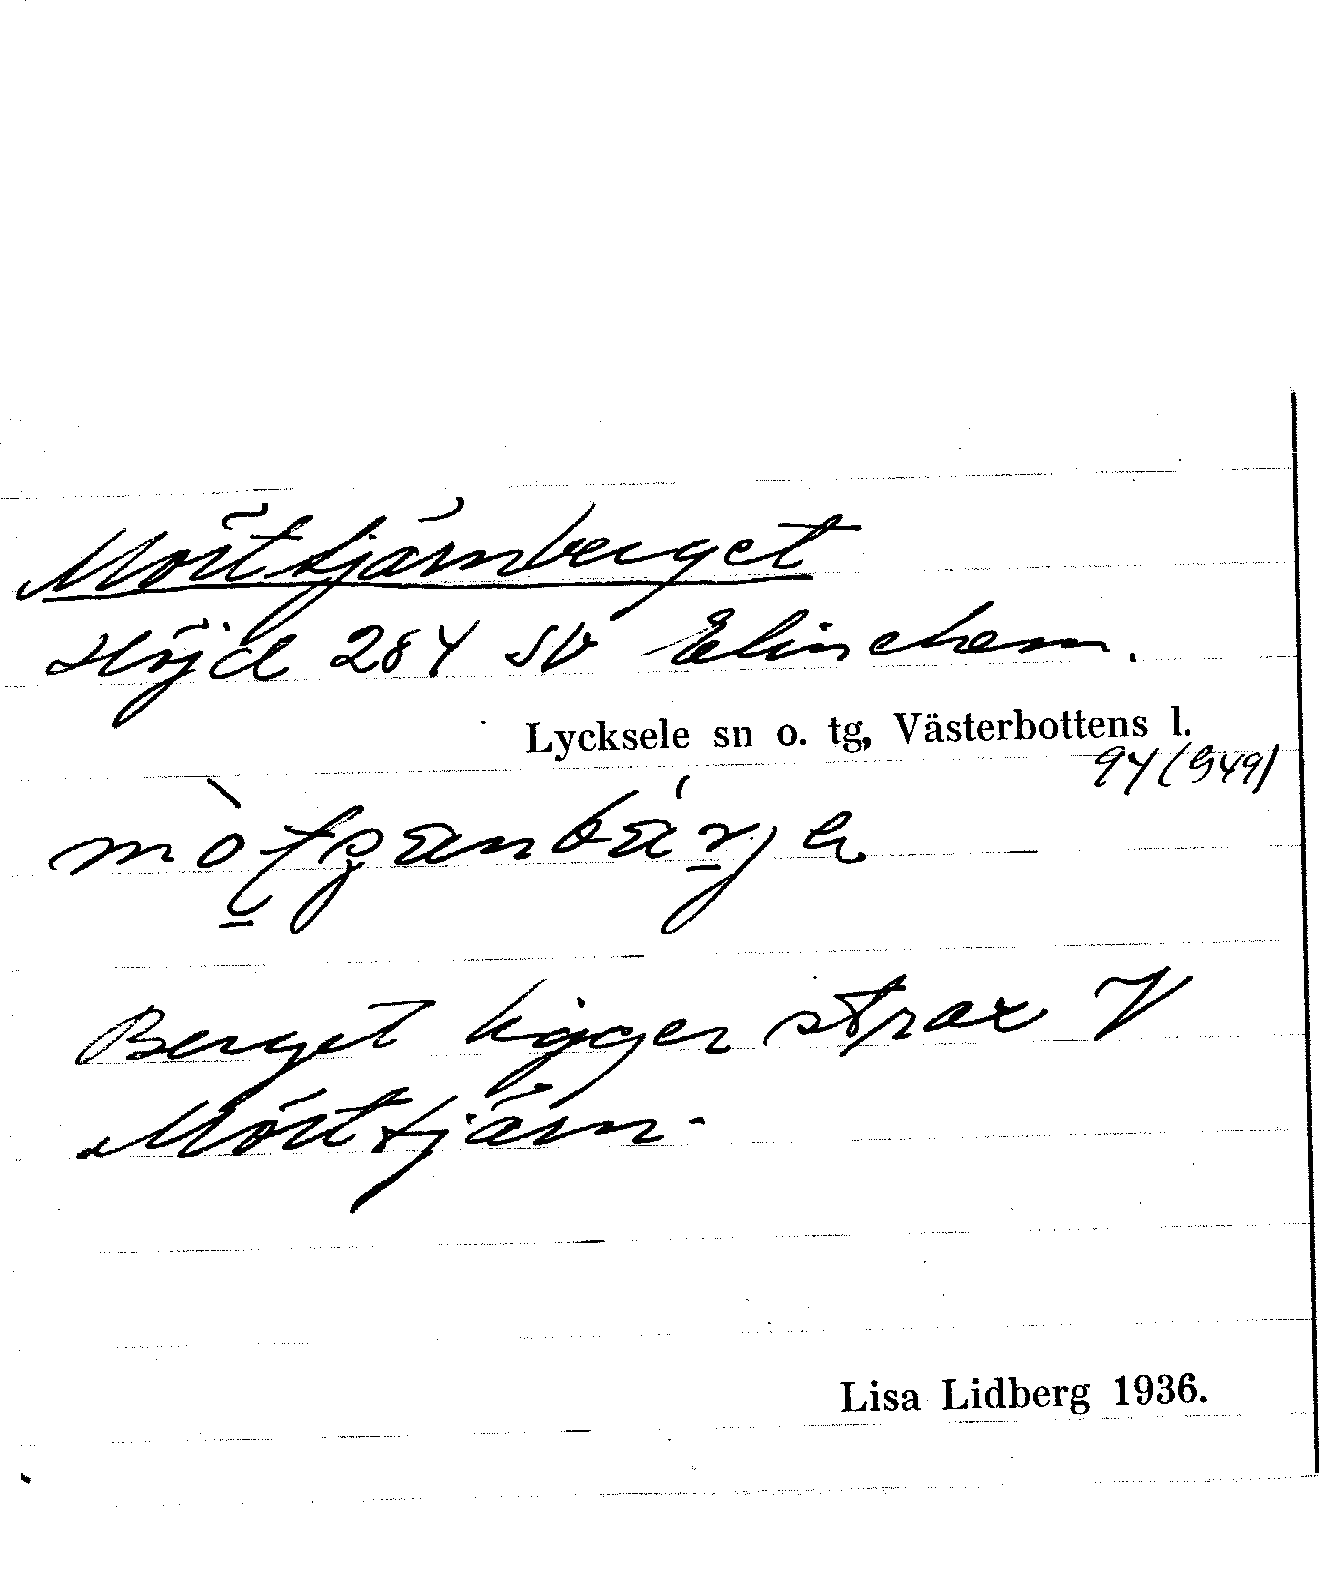 Mörttjärnberget
Höjd 284 SV Elinehem.
Lycksele sn o. tg, Västerbottens l.
94 (949)
Berget ligger strax V
Mörttjärn.
Lisa Lidberg 1936.